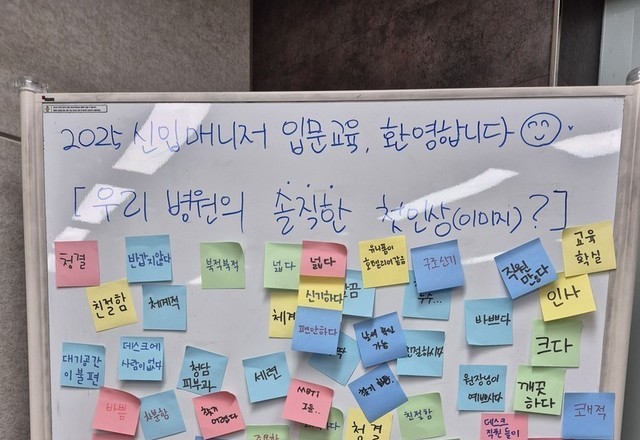 2025 신입매니저 입문교육, 환영합니다
[우리 병원의 솔직한 첫인상(이미지)?]
청결
반갑지않다
북적북적
넓다
넓다
유니폼이
호텔리어같음
구조신기
직원
많다
교육
학철
친절함
체계적
신기하다
인사
편안하다
바쁘다
크다
대기공간
이불편
데스크에
사람이없다
청담
피부과
세련
가능
친절하시다
원장님이
예쁘시다
깨끗
하다
바쁨
차분함
MBTI
친절함
청결
데스크
직원들이
쾌적